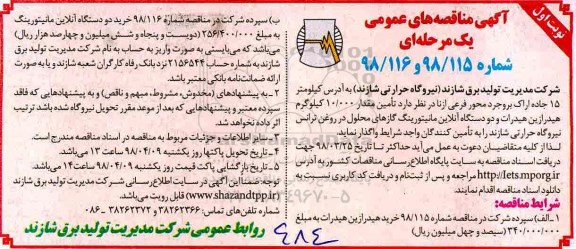 نوبت اول
آگهی مناقصه‌های عمومی
یک مرحله‌ای
شماره ۹۸/۱۱۵ و ۹۸/۱۱۶
شرکت مدیریت تولید برق شازند (نیروگاه حرارتی شازند) به آدرس کیلومتر
۱۵ جاده اراک بروجرد محور فرعی ازنا در نظر دارد تأمین مقدار ۱۰/۰۰۰ کیلوگرم
هیدرازین هیدرات و دو دستگاه آنلاین مانیتورینگ گازهای محلول در روغن ترانس
نیروگاه حرارتی شازند را به تأمین کنندگان واجد شرایط واگذار نماید.
لذا از کلیه متقاضیان دعوت به عمل می‌آید حداکثر تا تاریخ ۹۸/۰۳/۲۵ جهت
دریافت اسناد مناقصه به سایت پایگاه اطلاع‌رسانی مناقصات کشور به آدرس
http://iets.mporg.ir مراجعه و پس از ثبت‌نام و دریافت کد کاربری نسبت به
دانلود اسناد مناقصه اقدام نمایند.
شرایط مناقصه:
۱-الف) سپرده شرکت در مناقصه شماره ۹۸/۱۱۵ خرید هیدرازین هیدرات به مبلغ
۳۴۰/۰۰۰/۰۰۰ (سیصد و چهل میلیون ریال)
ب) سپرده شرکت در مناقصه شماره ۹۸/۱۱۶ خرید دو دستگاه آنلاین مانیتورینگ
به مبلغ ۲۵۶/۴۰۰/۰۰۰ (دویست و پنجاه و شش میلیون و چهارصد هزار ریال)
می‌باشد که می‌بایستی به صورت واریز به حساب به نام شرکت مدیریت تولید برق
شازند به شماره حساب ۲۱۵۶۵۴۴ نزد بانک رفاه کارگران شعبه شازند و یا به صورت
ارائه ضمانت‌نامه بانکی معتبر باشد.
۲-به پیشنهادهای (مخدوش، مشروط، مبهم و ناقص) و به پیشنهادهایی که فاقد
سپرده معتبر و پیشنهادهایی که بعد از موعد مقرر تحویل نیروگاه شده باشد ترتیب
اثر داده نخواهد شد.
۳-سایر اطلاعات و جزئیات مربوط به مناقصه در اسناد مناقصه مندرج است.
۴-تاریخ تحویل پاکتها روز یکشنبه ۹۸/۰۴/۰۹ ساعت ۱۳ می‌باشد.
۵-تاریخ بازگشایی پاکت قیمت روز یکشنبه ۹۸/۰۴/۰۹ ساعت ۱۴ می‌باشد.
توجه: ضمناً این آگهی در سایت اطلاع‌رسانی شرکت مدیریت تولید برق شازند
(www.shazandtpp.ir) قابل رویت می‌باشد.
شماره تلفن‌های تماس: ۳۸۲۶۲۳۶۶ و ۳۸۲۶۲۳۷۲-۰۸۶
روابط عمومی شرکت مدیریت تولید برق شازند
۴۸۴